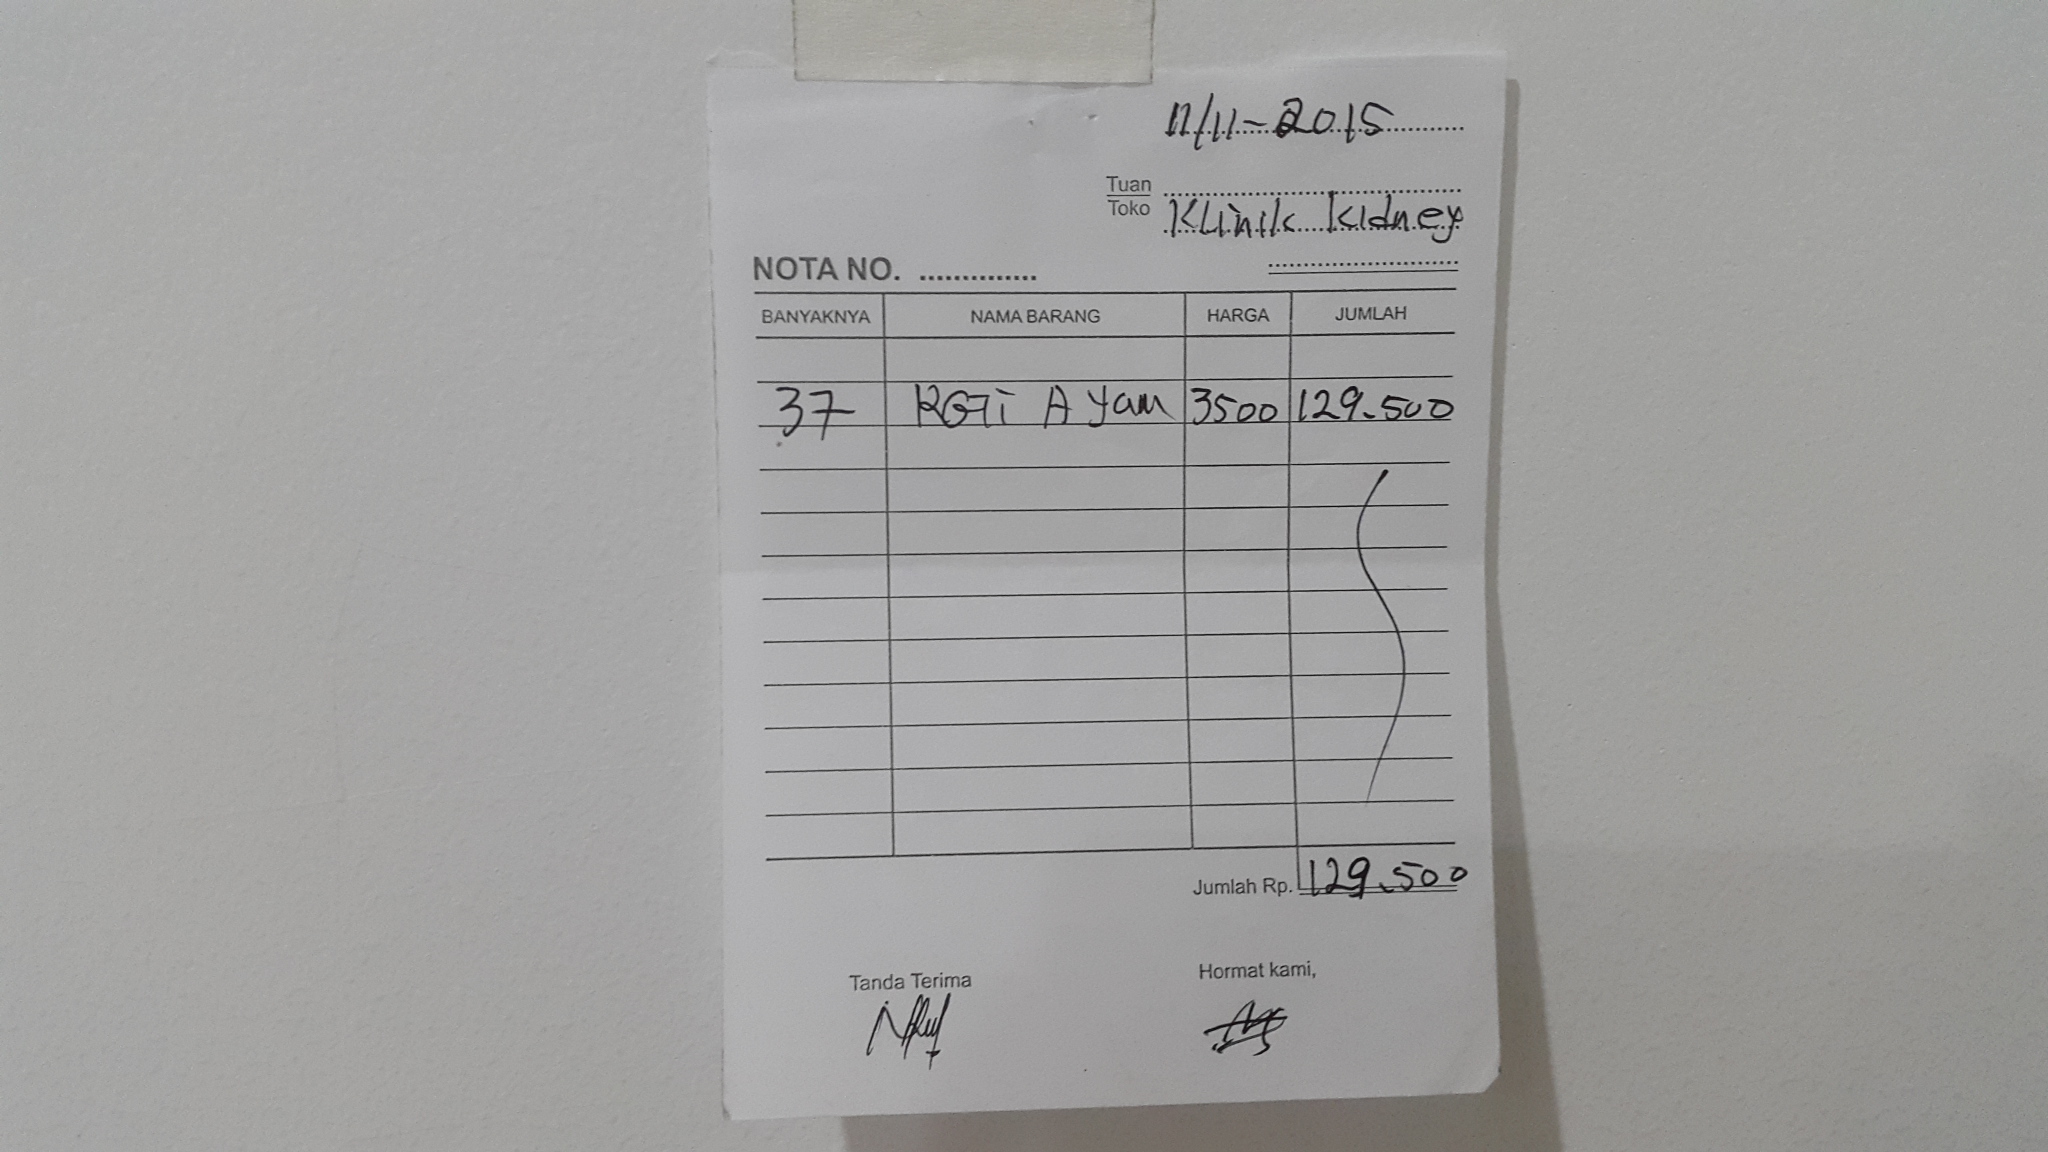 11/11-2015
Tuan
Toko Klinik Kidney
NOTA NO. ..............
BANYAKNYA NAMA BARANG HARGA JUMLAH
37 ROTi AYam 3500 129.500
Jumlah Rp. 129.500
Tanda Terima Hormat kami,